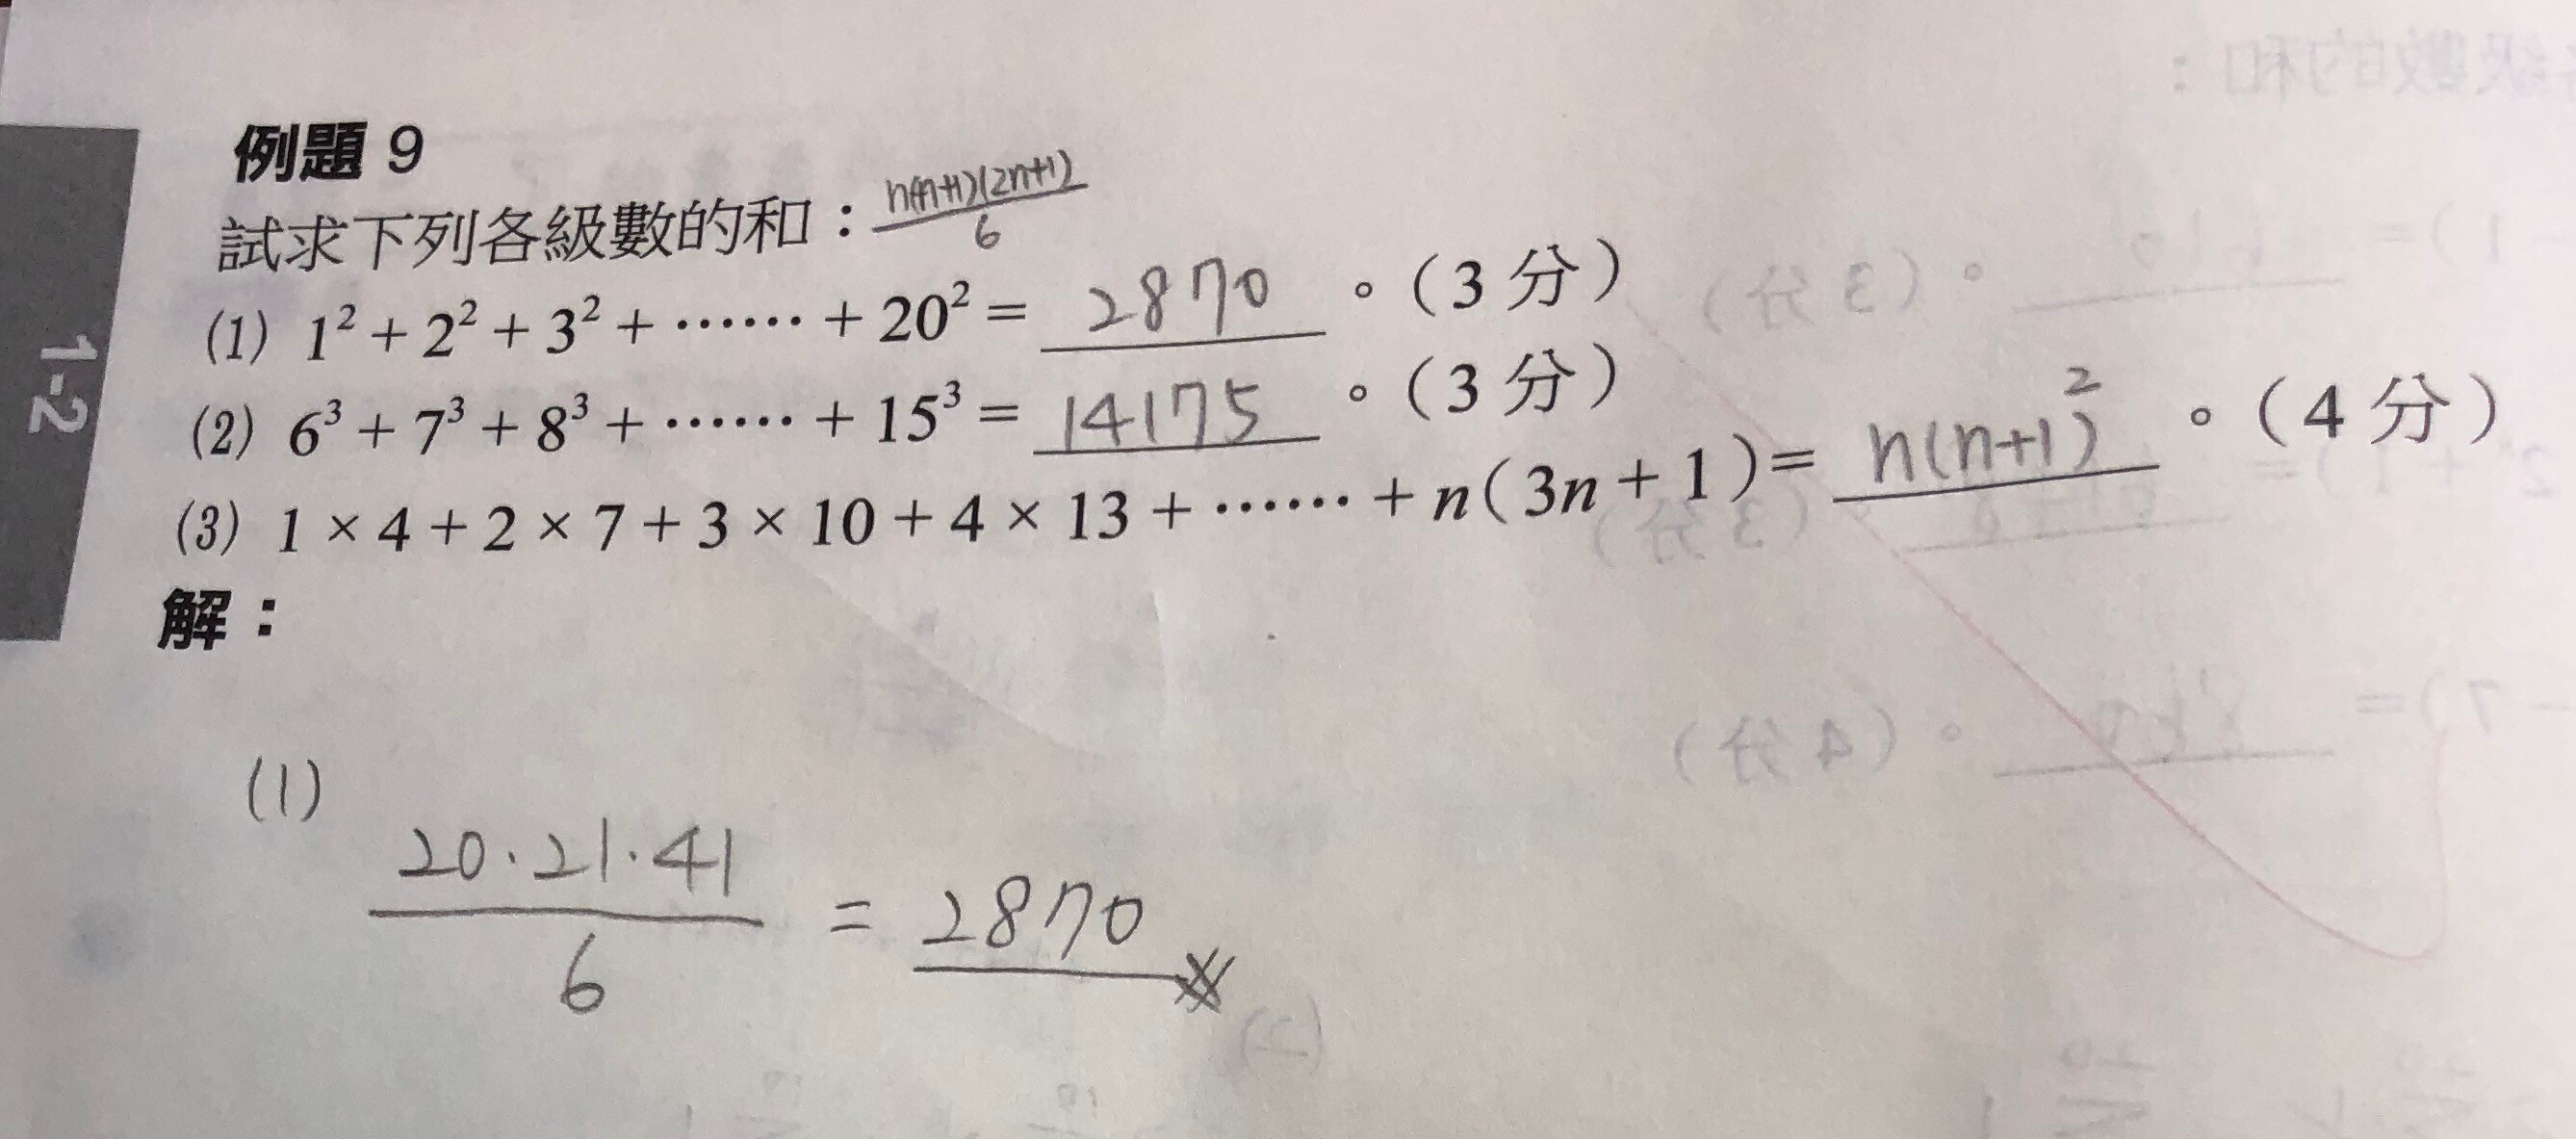 例題 9
試求下列各級數的和：n(n+1)(2n+1)/6
(1) 1² + 2² + 3² + …… + 20² = 2870 。（3 分）
(2) 6³ + 7³ + 8³ + …… + 15³ = 14175 。（3 分）
(3) 1 × 4 + 2 × 7 + 3 × 10 + 4 × 13 + …… + n（3n + 1）= n(n+1)² 。（4 分）
1-2
解：
(1)
20·21·41/6 = 2870